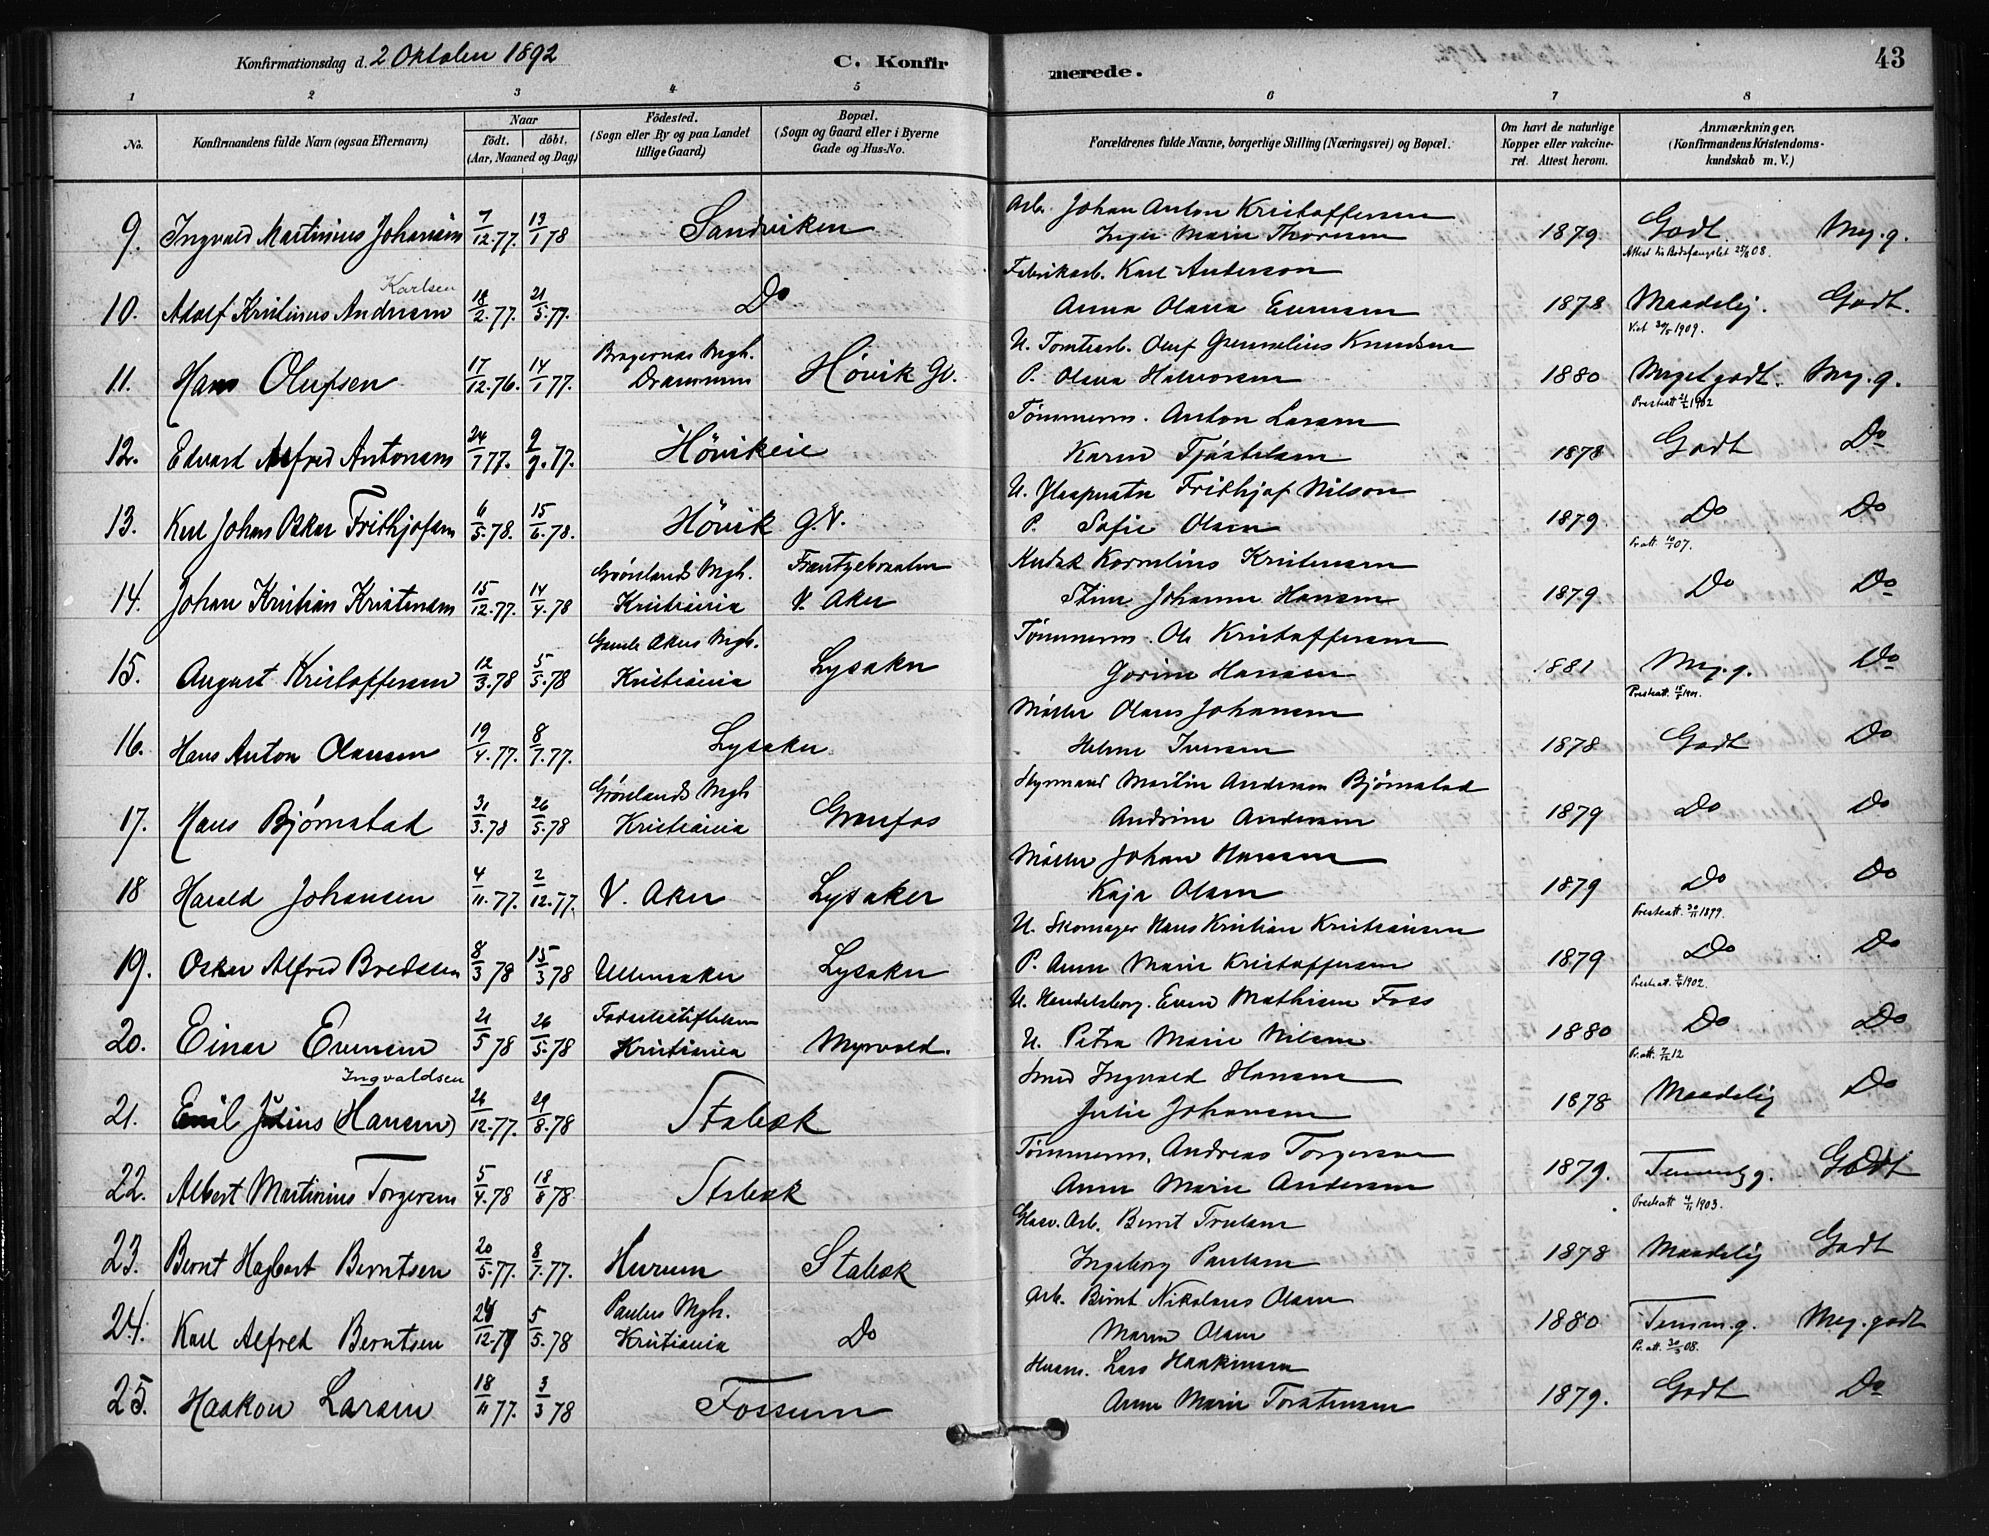 Konfirmationsdag d. 2 Oktober 1892
C. Konfirmerede.
43
1 2 3 4 5 6 7 8
No.
Konfirmandens fulde Navn (ogsaa Efternavn)
Naar født. døbt. (Aar, Maaned og Dag)
Fødested. (Sogn eller By og paa Landet tillige Gaard)
Bopæl. (Sogn og Gaard eller i Byerne Gade og Hus-No.
Forældrenes fulde Navne, borgerlige Stilling (Næringsvei) og Bopæl.
Om havt de naturlige Kopper eller vakcineret. Attest herom.
Anmærkninger. (Konfirmandens Kristendomskundskab m. V.)
9. Ingvald Martinius Johansen 7/12.77. 13/1 78 Sandviken Arb. Johan Anton Kristoffersen
Inger Marie Thoresen 1879 Godt Meg. g.
Attest til Bodsfængslet 25/8 08.
Karlsen
10. Adolf Kristinus Andersen 18/2.77. 21/5.77. Do Fabrikarb. Karl Anderson
Anna Olava Evensen 1878 Maadelig. Godt.
11. Hans Olufsen 17/12.76. 14/1 77. Bragernæs Mgh. Drammen Høvik Gv. U. Tomtearb. Oluf Knudsen
P. Olava Halvorsen 1880 Meget godt. Meg. g.
Presteatt 1902
12. Edvard Alfred Antonsen 24/1 77. 2/9.77. Høvikeie Tømmerm. Anton Larsen
Karen Tjøstelsen 1878 Godt Do
13. Karl Johan Oskar Frithjofsen 6/5.78. 15/6.78. Høvik G.V. U. Frithjof Nilson
P. Sofie Olsen 1879 Do Do
Pr. att. 07.
14. Johan Kristian Kristensen 15/12.77. 14/4.78 Grønlands Mgh. Kristiania Frantzebraaten V. Aker Kudsk Kornelius Kristensen
Stine Johanne Hansen 1879 Do Do
15. August Kristoffersen 12/3.78 5/5.78 Gamle Akers Mgh. Kristiania Lysaker Tømmerm. Ole Kristoffersen
Gorine Hansen 1881 Meg. g. Do
Presteatt.
16. Hans Anton Olausen 19/4.77. 8/7.77. Lysaker Møller Olaus Johansen
Helene Iversen 1878 Godt Do
17. Hans Bjørnstad 31/3.78 26/5.78 Grønlands Mgh Kristiania Granfos Styrmand Martin Andersen Bjørnstad
Andrine Andersen 1879 Do Do
18 Harald Johansen 4/11.77. 2/12.77. V. Aker Lysaker Møller Johan Hansen
Kaja Olsen 1879 Do Do
Presteatt. 30/11 1899.
19. Oskar Alfred Bredesen 8/3 78 15/3 78 Ullensaker Lysaker U. Skomager Hans Kristian Kristiansen
P. Anne Marie Kristoffersen 1879 Do Do
Presteatt. 1902.
20. Einar Evensen 21/5 78 26/5.78 Fødselsstiftelsen Kristiania Myrvold. U. Handelsborg. Even Mathisen Foss
U. Petra Marie Nilsen 1880 Do Do
Pr. att. 12
Ingvaldsen
21. Emil Julius (Hansen) 26/12.77. 29/8.78 Stabæk Smed Ingvald Hansen
Julie Johansen 1878 Maadelig Do
22. Albert Martinius Torgersen 5/4.78 18/8 78 Stabæk Tømmerm. Andreas Torgersen
Anne Marie Andersen 1879. Temmelig g. Godt
Presteatt 1903.
23. Bernt Hagbart Berntsen 20/5.77. 8/7.77. Hurum Stabæk Glasv. Arb. Bernt Trulsen
Ingeborg Paulsen 1878 Maadelig Godt
24. Karl Alfred Berntsen 5/5.78 Paulus Mgh. Kristiania Do Arb. Bernt Nikolaus Olsen
Maren Olsen 1880 Temm. g. Meg. godt
Pr. att. 08.
25. Haakon Larsen 18/11 77. 3/3 78 Fossum Husm. Lars Haakensen
Anne Marie Torstensen 1879. Godt Do